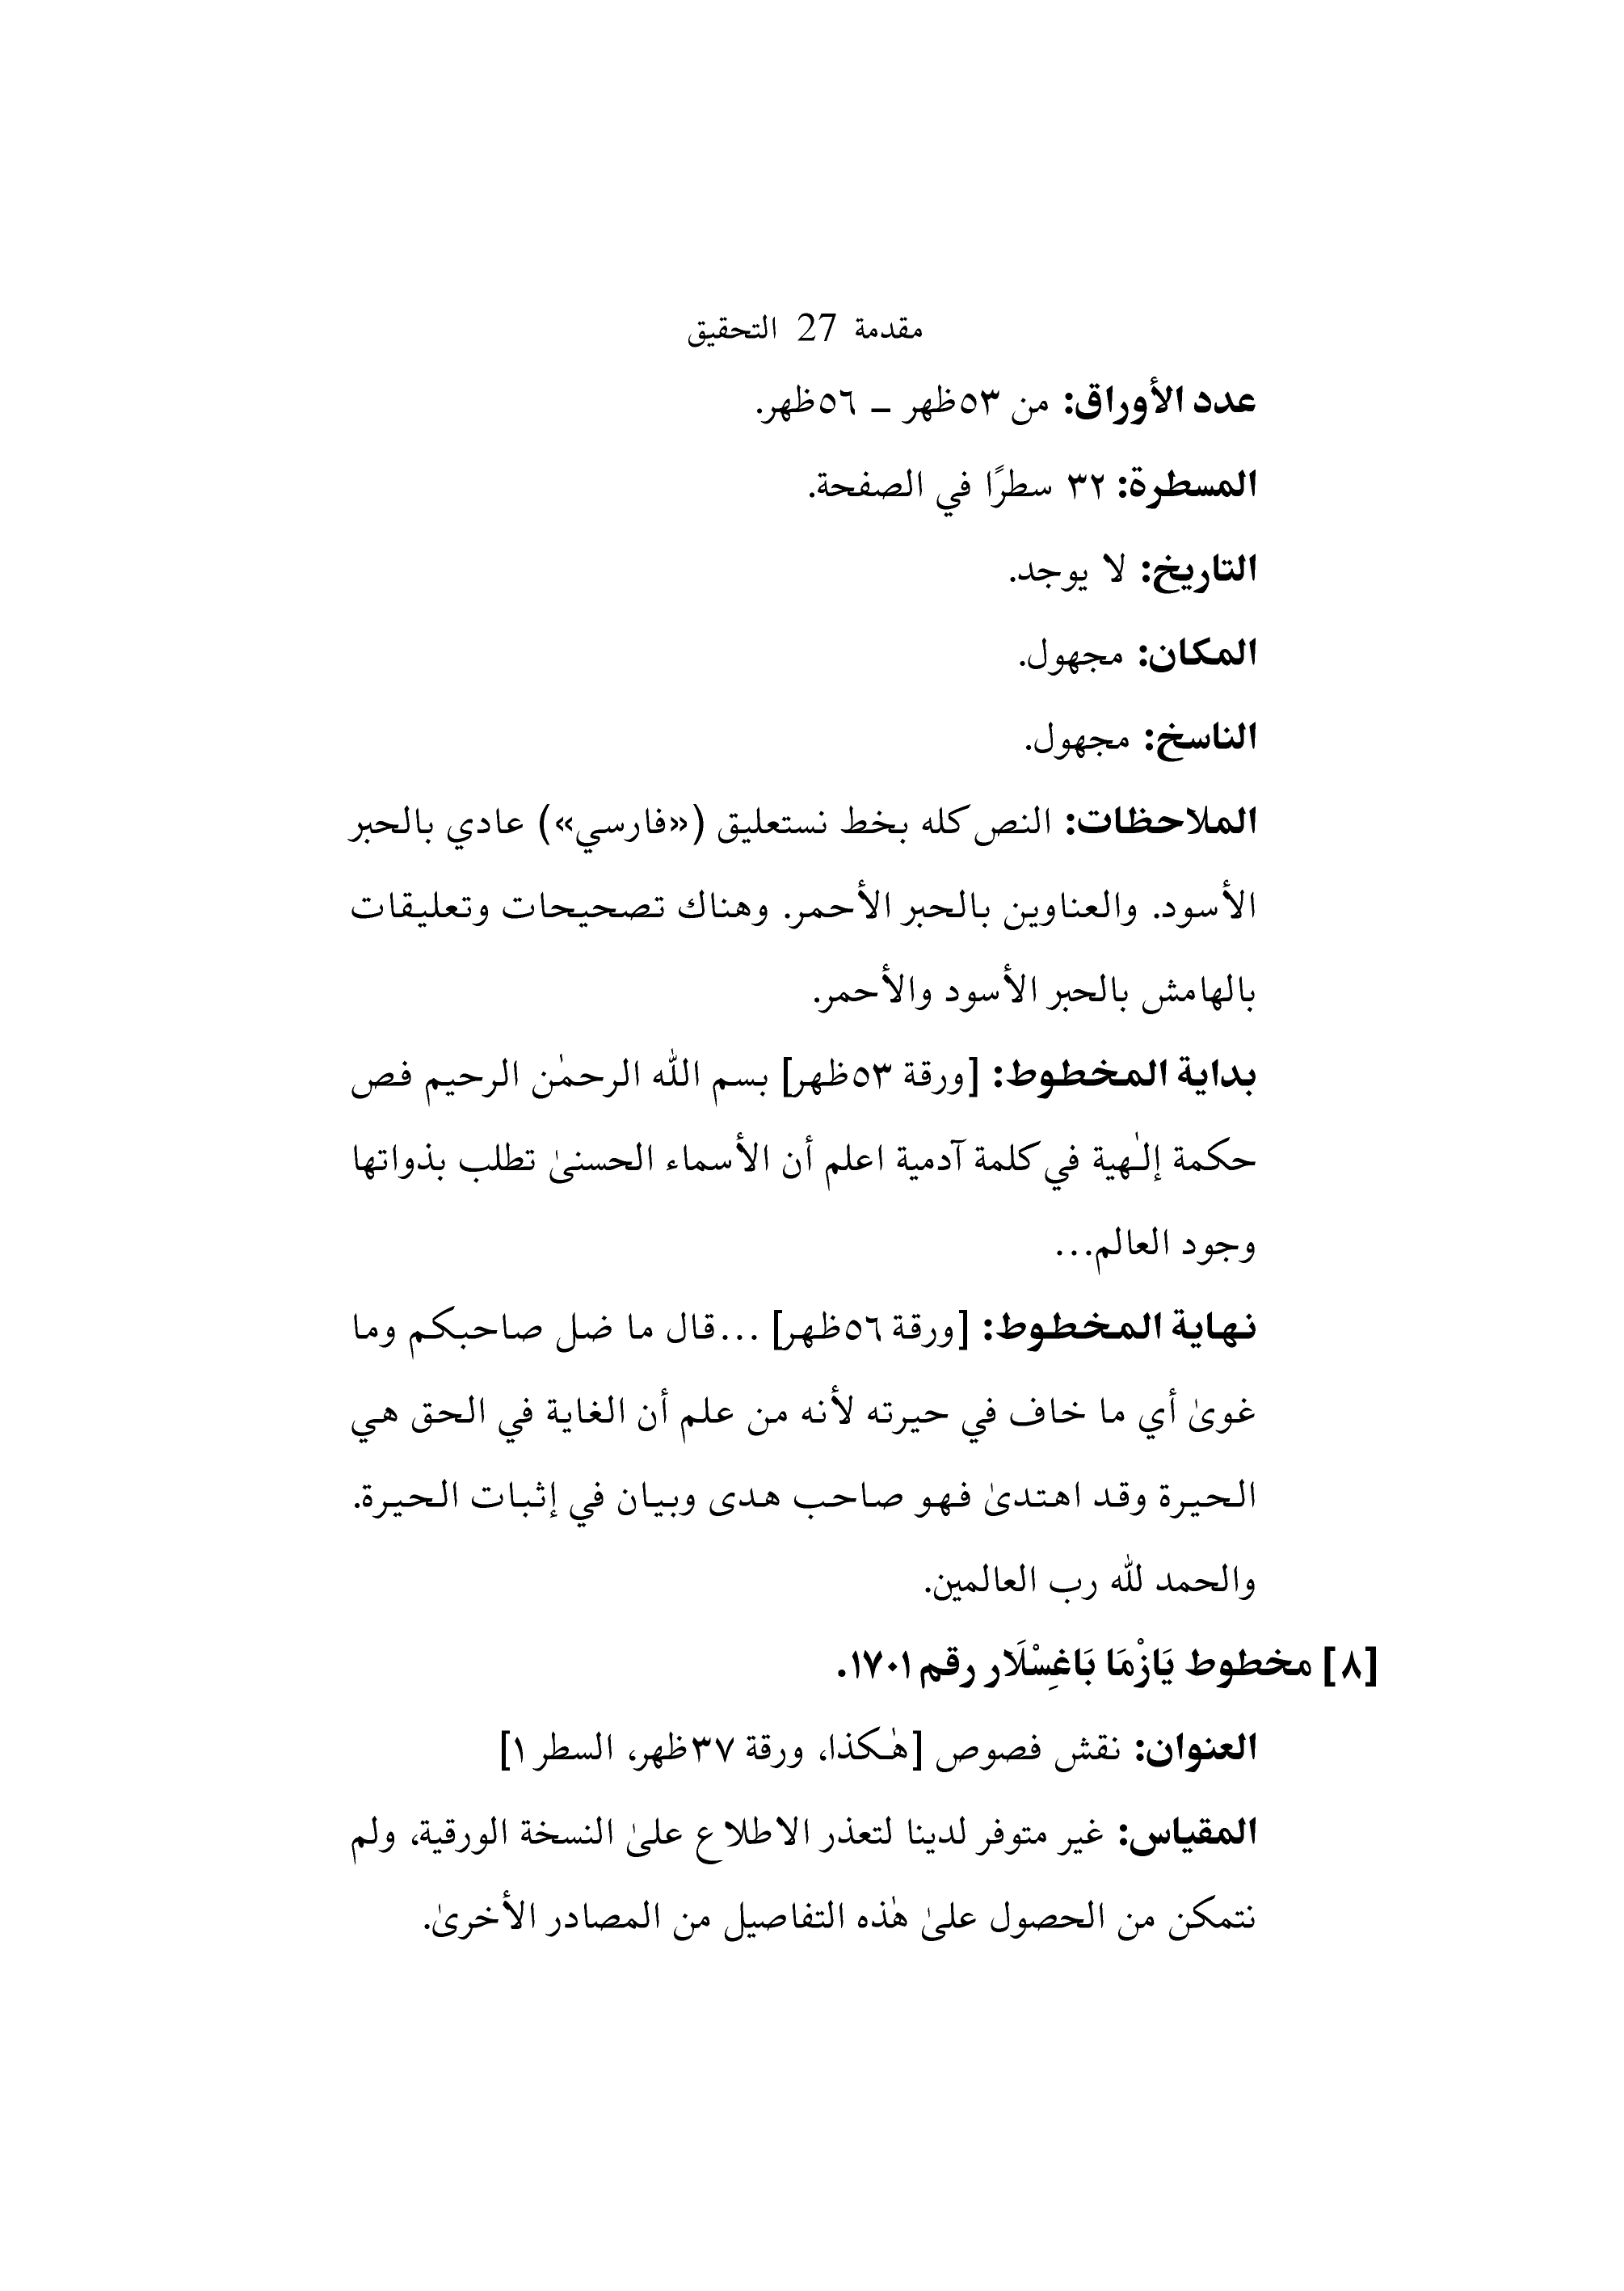 مقدمة 27 التحقيق
عدد الأوراق: من ٥٣ظهر – ٥٦ظهر.
المسطرة: ٣٢ سطرًا في الصفحة.
التاريخ: لا يوجد.
المكان: مجهول.
الناسخ: مجهول.
الملاحظات: النص كله بخط نستعليق («فارسي») عادي بالحبر
الأسود. والعناوين بالحبر الأحمر. وهناك تصحيحات وتعليقات
بالهامش بالحبر الأسود والأحمر.
بداية المخطوط: [ورقة ٥٣ظهر] بسم الله الرحمٰن الرحيم فص
حكمة إلٰهية في كلمة آدمية اعلم أن الأسماء الحسنىٰ تطلب بذواتها
وجود العالم...
نهاية المخطوط: [ورقة ٥٦ظهر] ...قال ما ضل صاحبكم وما
غوىٰ أي ما خاف في حيرته لأنه من علم أن الغاية في الحق هي
الحيرة وقد اهتدىٰ فهو صاحب هدى وبيان في إثبات الحيرة.
والحمد لله رب العالمين.
[٨] مخطوط يَازْمَا بَاغِسْلَار رقم ١٧٠١.
العنوان: نقش فصوص [هٰكذا، ورقة ٣٧ظهر، السطر ١]
المقياس: غير متوفر لدينا لتعذر الاطلاع علىٰ النسخة الورقية، ولم
نتمكن من الحصول علىٰ هٰذه التفاصيل من المصادر الأخرىٰ.